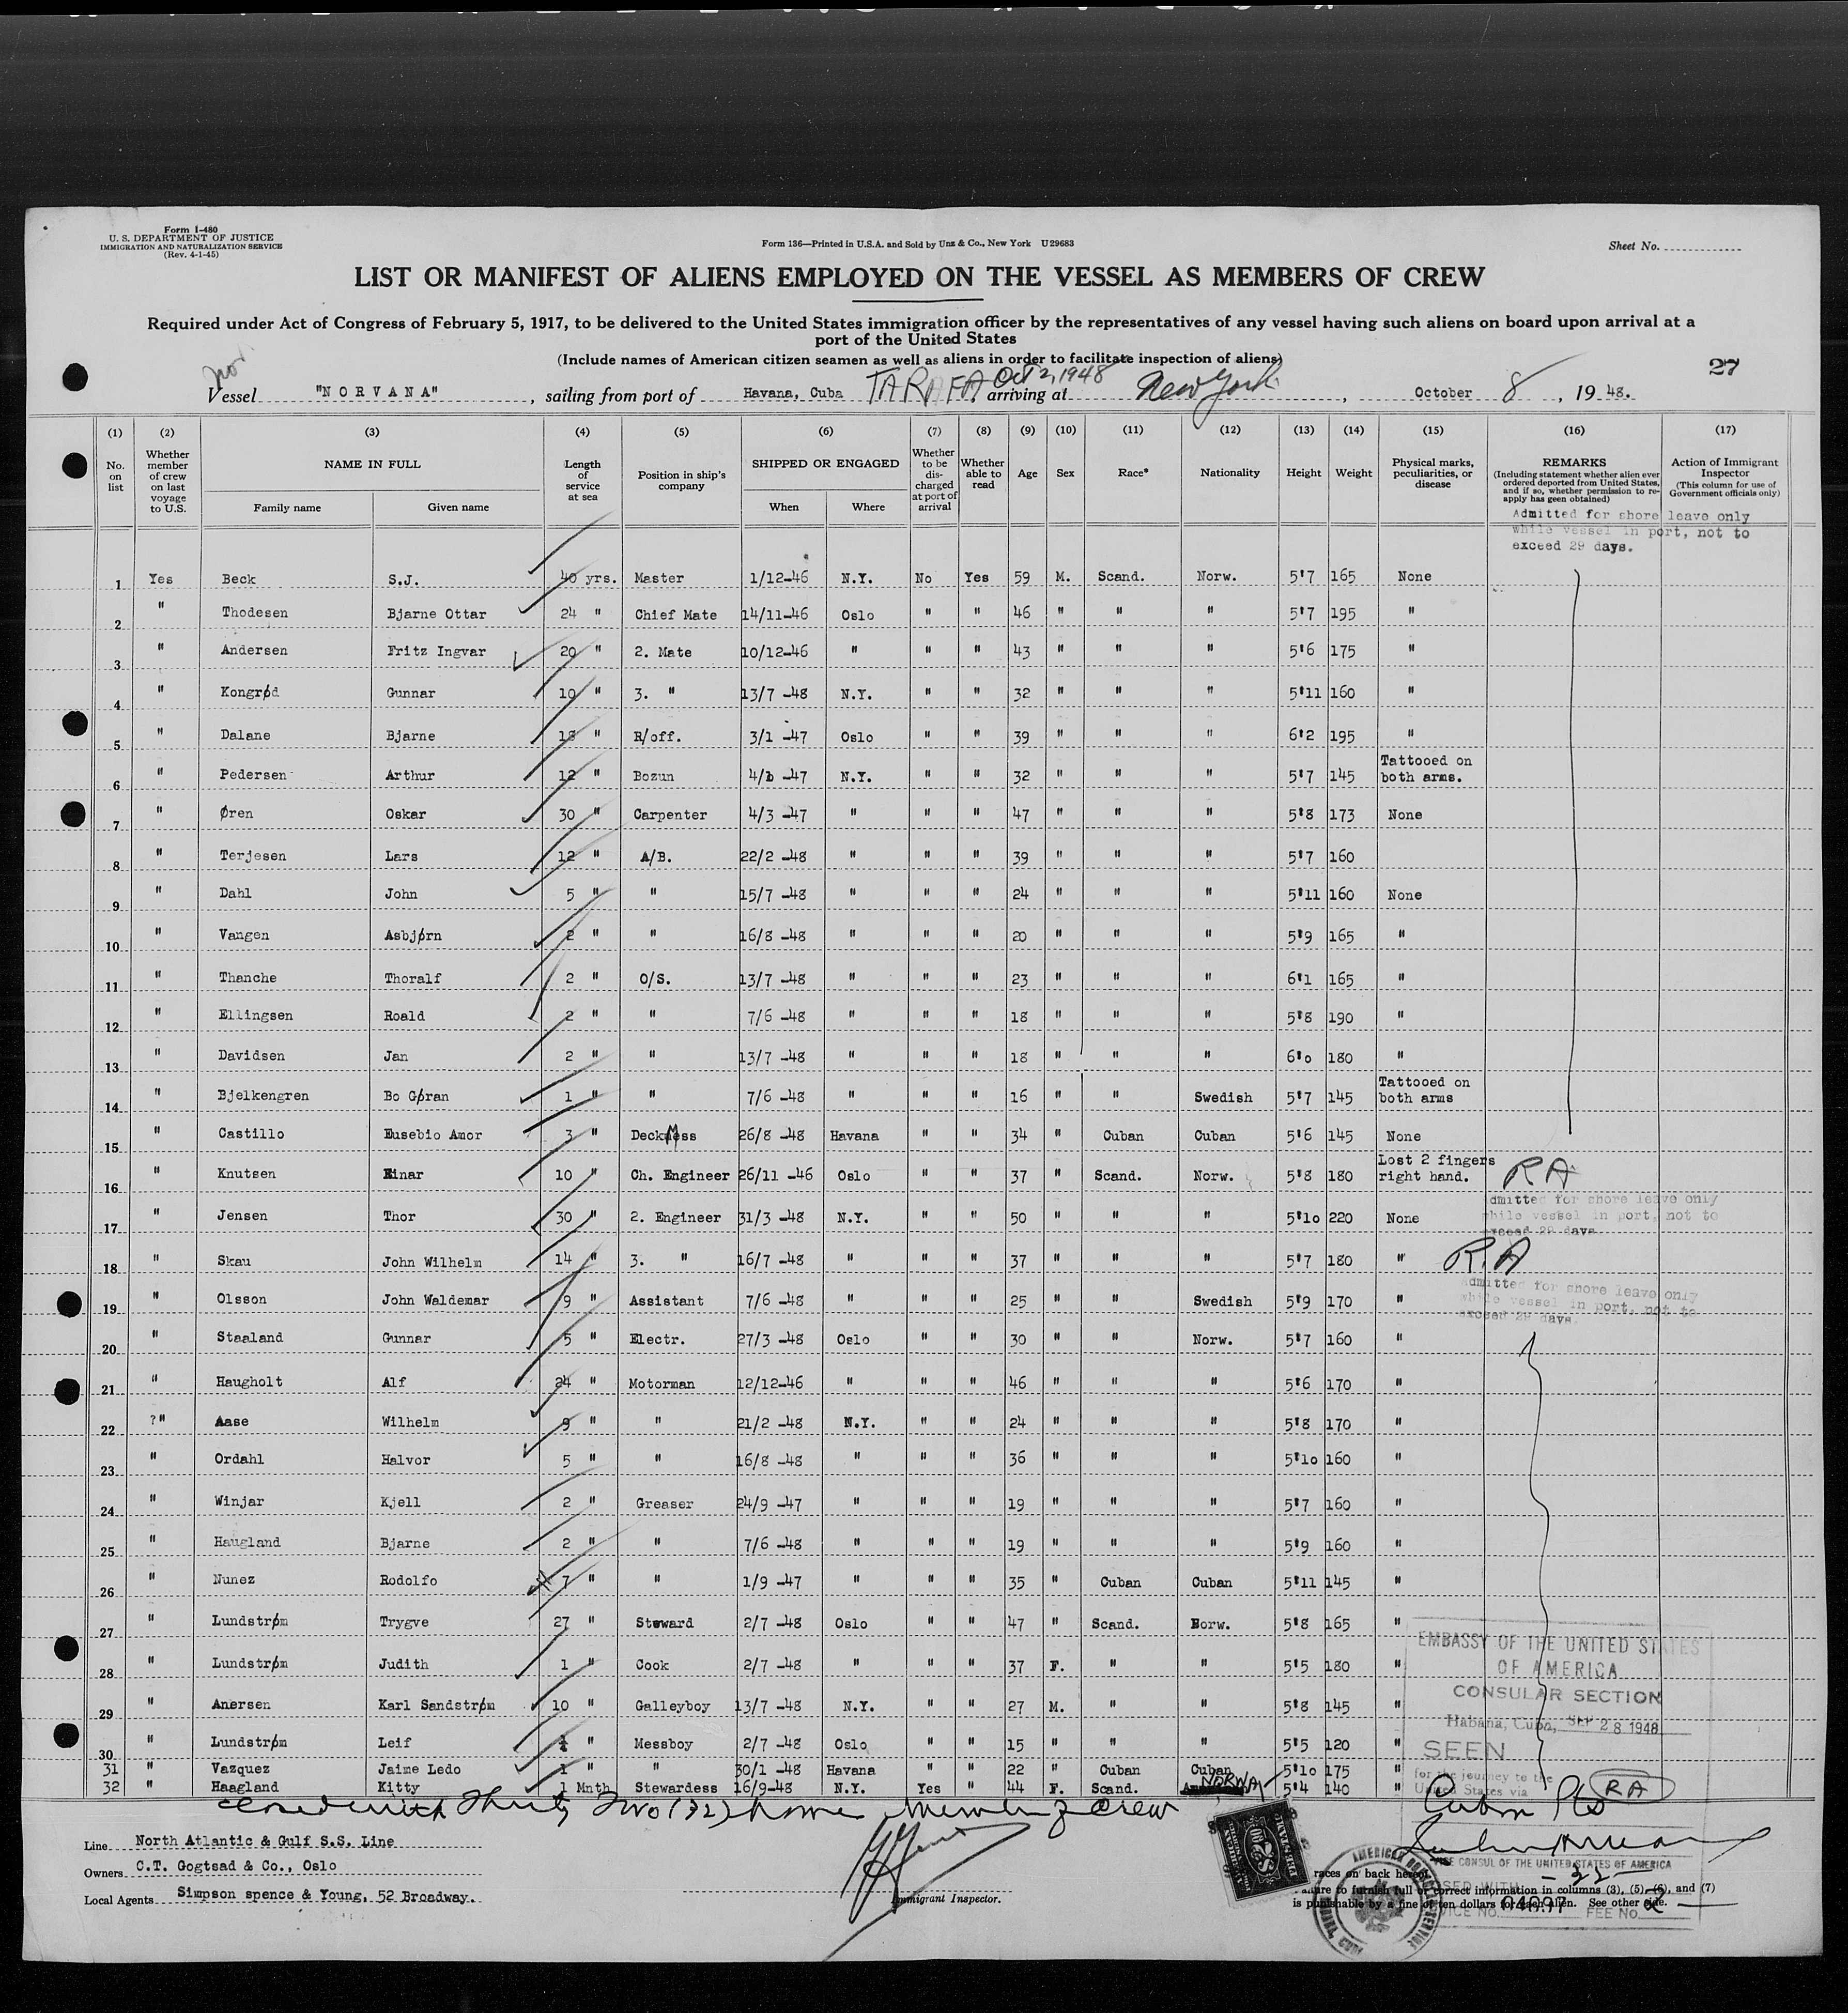 Form I-480
U. S. DEPARTMENT OF JUSTICE
IMMIGRATION AND NATURALIZATION SERVICE
(Rev. 4-1-45)
Form 136—Printed in U.S.A. and Sold by Unz & Co., New York U29683
Sheet No.
LIST OR MANIFEST OF ALIENS EMPLOYED ON THE VESSEL AS MEMBERS OF CREW
Required under Act of Congress of February 5, 1917, to be delivered to the United States immigration officer by the representatives of any vessel having such aliens on board upon arrival at a
port of the United States
(Include names of American citizen seamen as well as aliens in order to facilitate inspection of aliens)
27
nor.
Vessel "NORVANA", sailing from port of Havana, Cuba TARAFA Oct 2, 1948, arriving at New York, October 8, 1948.
(1) (2) (3) (4) (5) (6) (7) (8) (9) (10) (11) (12) (13) (14) (15) (16) (17)
No. on list
Whether member of crew on last voyage to U.S.
NAME IN FULL
Family name Given name
Length of service at sea
Position in ship's company
SHIPPED OR ENGAGED
When Where
Whether to be discharged at port of arrival
Whether able to read
Age
Sex
Race*
Nationality
Height
Weight
Physical marks, peculiarities, or disease
REMARKS
(Including statement whether alien ever ordered deported from United States, and if so, whether permission to re-apply has geen obtained)
Action of Immigrant Inspector
(This column for use of Government officials only)
Admitted for shore leave only
while vessel in port, not to
exceed 29 days.
1 Yes Beck S.J. 40 yrs. Master 1/12-46 N.Y. No Yes 59 M. Scand. Norw. 5'7 165 None
2 " Thodesen Bjarne Ottar 24 " Chief Mate 14/11-46 Oslo " " 46 " " " 5'7 195 "
3 " Andersen Fritz Ingvar 20 " 2. Mate 10/12-46 " " " 43 " " " 5'6 175 "
4 " Kongrød Gunnar 10 " 3. " 13/7 -48 N.Y. " " 32 " " " 5'11 160 "
5 " Dalane Bjarne " R/off. 3/1 -47 Oslo " " 39 " " " 6'2 195 "
6 " Pedersen Arthur 12 " Bozun -47 N.Y. " " 32 " " " 5'7 145 Tattooed on both arms.
7 " Øren Oskar 30 " Carpenter 4/3 -47 " " " 47 " " " 5'8 173 None
8 " Terjesen Lars 12 " A/B. 22/2 -48 " " " 39 " " " 5'7 160
9 " Dahl John 5 " " 15/7 -48 " " " 24 " " " 5'11 160 None
10 " Vangen Asbjørn 2 " " 16/8 -48 " " " 20 " " " 5'9 165 "
11 " Thanche Thoralf 2 " O/S. 13/7 -48 " " " 23 " " " 6'1 165 "
12 " Ellingsen Roald 2 " " 7/6 -48 " " " 18 " " " 5'8 190 "
13 " Davidsen Jan 2 " " 13/7 -48 " " " 18 " " " 6'0 180 "
14 " Bjelkengren Bo Gøran 1 " " 7/6 -48 " " " 16 " " Swedish 5'7 145 Tattooed on both arms
15 " Castillo Eusebio Amor 3 " Deckmess 26/8 -48 Havana " " 34 " Cuban Cuban 5'6 145 None
16 " Knutsen Einar 10 " Ch. Engineer 26/11 -46 Oslo " " 37 " Scand. Norw. 5'8 180 Lost 2 fingers right hand. RA
dmitted for shore leave only
while vessel in port, not to
exceed 29 days
17 " Jensen Thor 30 " 2. Engineer 31/3 -48 N.Y. " " 50 " " " 5'10 220 None
18 " Skau John Wilhelm 14 " 3. " 16/7 -48 " " " 37 " " " 5'7 180 " R.A
admitted for shore leave only
while vessel in port, not to
exceed 29 days.
19 " Olsson John Waldemar 9 " Assistant 7/6 -48 " " " 25 " " Swedish 5'9 170 "
20 " Staaland Gunnar 5 " Electr. 27/3 -48 Oslo " " 30 " " Norw. 5'7 160 "
21 " Haugholt Alf 24 " Motorman 12/12-46 " " " 46 " " " 5'6 170 "
22 ?" Aase Wilhelm 9 " " 21/2 -48 N.Y. " " 24 " " " 5'8 170 "
23 " Ordahl Halvor 5 " " 16/8 -48 " " " 36 " " " 5'10 160 "
24 " Winjar Kjell 2 " Greaser 24/9 -47 " " " 19 " " " 5'7 160 "
25 " Haugland Bjarne 2 " " 7/6 -48 " " " 19 " " " 5'9 160 "
26 " Nunez Rodolfo 7 " " 1/9 -47 " " " 35 " Cuban Cuban 5'11 145 "
27 " Lundstrøm Trygve 27 " Steward 2/7 -48 Oslo " " 47 " Scand. Norw. 5'8 165 "
28 " Lundstrøm Judith 1 " Cook 2/7 -48 " " " 37 F. " " 5'5 180 "
29 " Anersen Karl Sandstrøm 10 " Galleyboy 13/7 -48 N.Y. " " 27 M. " " 5'8 145 "
30 " Lundstrøm Leif " Messboy 2/7 -48 Oslo " " 15 " " " 5'5 120 "
31 " Vazquez Jaime Ledo 1 " " 30/1 -48 Havana " " 22 " Cuban Cuban 5'10 175 "
32 " Haagland Kitty 1 Mnth Stewardess 16/9-48 N.Y. Yes " 44 F. Scand. NORWAY 5'4 140 " RA
EMBASSY OF THE UNITED STATES
OF AMERICA
CONSULAR SECTION
Habana, Cuba, SEP 28 1948
SEEN
for the journey to the
United States via
Thirty Two (32) names Members of crew
Line North Atlantic & Gulf S.S. Line
Owners C.T. Gogtsad & Co., Oslo
Local Agents Simpson spence & Young, 52 Broadway.
Immigrant Inspector.
VICE CONSUL OF THE UNITED STATES OF AMERICA
races on back hereof.
Failure to furnish full or correct information in columns (3), (5), (6), and (7)
is punishable by a fine of ten dollars for each alien. See other side.
FEE No. 2